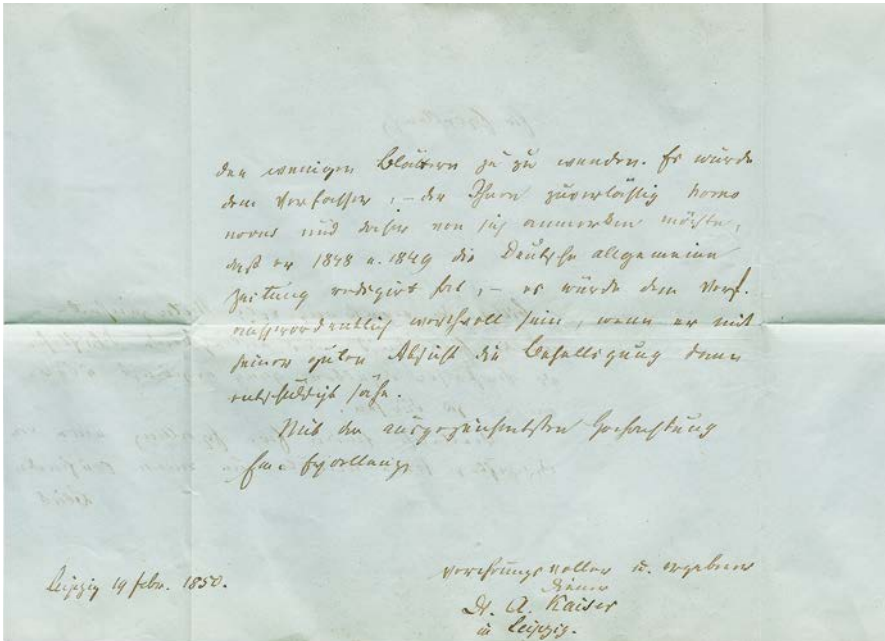 den wenigen Blättern zu zu wenden. Es würde
dem Verfasser, – der Ihnen zuverlässig homo
novus und daher von sich anmerken möchte,
daß er 1848 u. 1849 die Deutsche allgemeine
Zeitung redigirt hat, – es würde dem Verf.
außerordentlich werthvoll sein, wenn er mit
seiner guten Absicht die Behelligung denn
entschuldigt sähe.
Mit der ausgezeichnetsten Hochachtung
Ew. Excellenz
verehrungsvoller u. ergebener
Diener
Leipzig 19 Febr. 1850.
Dr. A. Kaiser
in Leipzig.